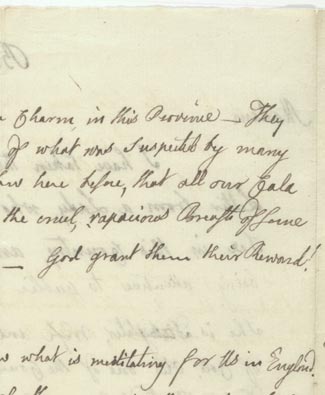 Charm in this Province — They
of what was suspected by many
here before, that all our Cala
the cruel, rapacious Breasts of some
— God grant them their Reward!
what is meditating for Us in England.